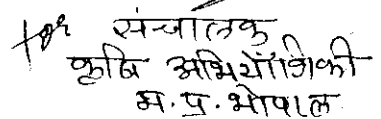 संचालक
कृषि अभियाँत्रिकी
म.प्र. भोपाल